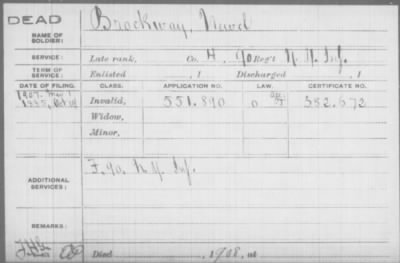 DEAD
NAME OF SOLDIER: Brockway,
SERVICE: Late rank, Co. H, 90 Reg't N.Y. Inf.
TERM OF SERVICE: Enlisted , 1 Discharged , 1
DATE OF FILING. CLASS. APPLICATION NO. LAW. CERTIFICATE NO.
Invalid, 551.890 382.672
Widow,
Minor,
ADDITIONAL SERVICES: F. 90. N.Y. Inf.
REMARKS:
Died , 1908, at